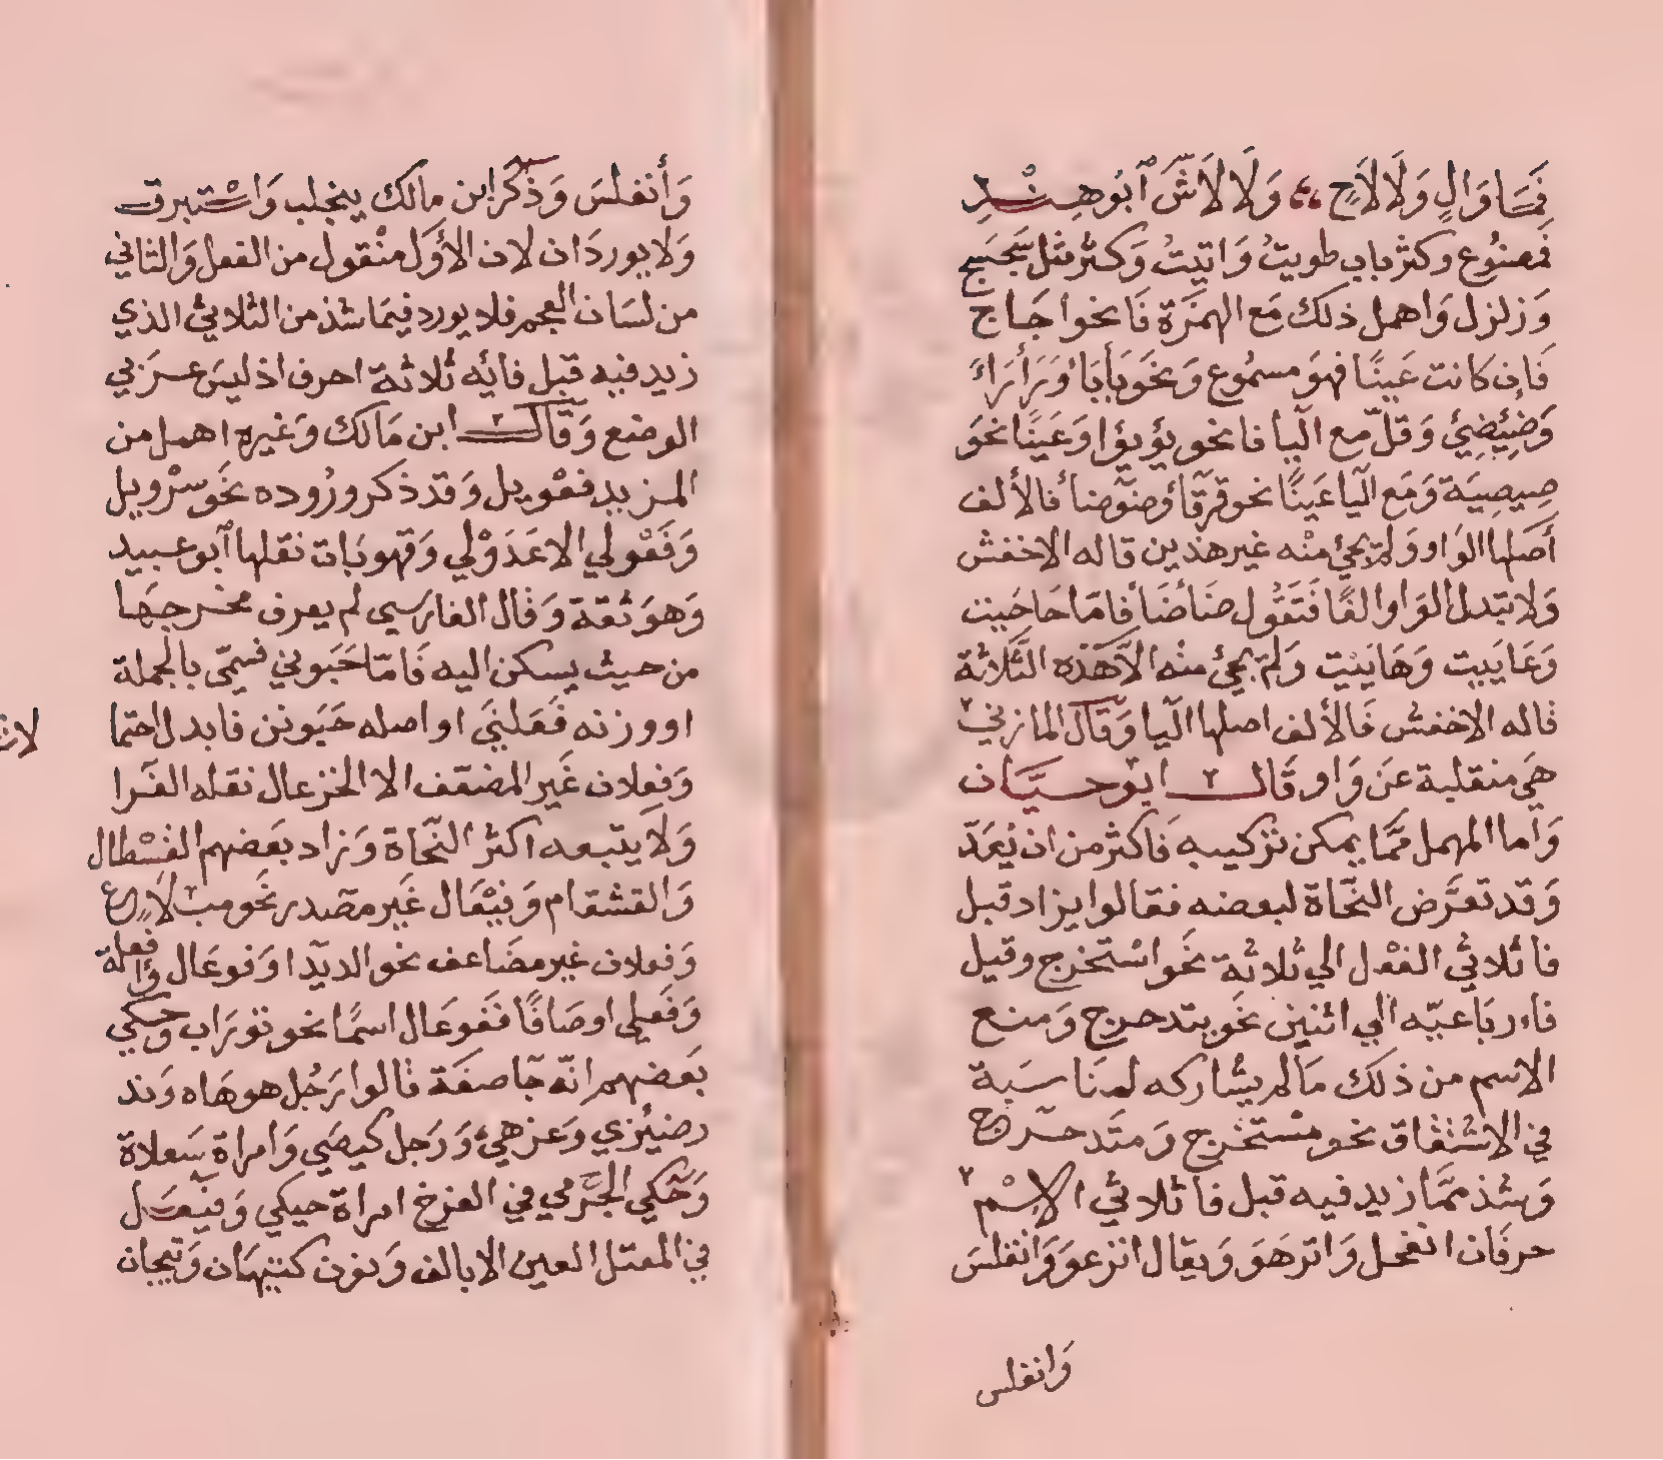 فما وال ولا لاح ولا لاش أبو هند
فمصنوع وكثر باب طويت واتيت وكثر مثل سجسج
وزلزل واهمل ذلك مع الهمزة فا نحو اجاج
فان كانت عينا فهو مسموع ونحو بأبأ ورأرأ
وضئضئ وقل مع اليا فا نحو يؤيؤ وعينا نحو
صيصية ومع اليا عينا نحو قوقأ وضوضأ فالألف
أصلها الواو ولم يجئ منه غير هذين قاله الاخفش
ولا تبدل الواو الفا فتقول ضاضا فاما حاحيت
وعاييت وهاييت ولم يجئ منه الا هذه الثلاثة
قاله الاخفش فالألف اصلها اليا وقال المازني
هي منقلبة عن واو قال ابو حيان
وأما المهمل مما يمكن تركيبه فاكثر من ان يعد
وقد تعرض النحاة لبعضه فقالوا يزاد قبل
فا ثلاثي الفعل الي ثلاثة نحو استخرج وقيل
فاء رباعيه الي اثنين نحو يتدحرج ومنع
الاسم من ذلك مالم يشاركه لمناسبة
في الاشتقاق نحو مستخرج ومتدحرج
وشذ مما زيد فيه قبل فا ثلاثي الاسم
حرفان انقحل وانزهو ويقال انزعو وانفلس
وانفلس
وأنفلس وذكر ابن مالك ينجلب واستبرق
ولا يوردان لان الأول منقول من الفعل والثاني
من لسان العجم فلا يورد فيما شذ من الثلاثي الذي
زيد فيه قبل فائه ثلاثة احرف اذ ليس عربي
الوضع وقال ابن مالك وغيره اهمل من
المزيد فعويل وقد ذكر وروده نحو سرويل
وفعولي الا عدولي وقهوبات نقلها أبو عبيد
وهو ثقة وقال الفارسي لم يعرف مخرجها
من حيث يسكن اليه فاما حبوني فسمي بالجملة
او وزنه فعلني او اصله حبونن فابدل احتما
وفعلان غير المضعف الا الخزعال نقله الفرا
ولا يتبعه اكثر النحاة وزاد بعضهم القسطال
والقشقام وفيعال غير مصدر نحو
وفعلان غير مضاعف نحو الديدا وفوعال وافعلة
وفعلى اوصافا ففوعال اسما نحو توراب وحكي
بعضهم انه جا صفة قالوا رجل هوهاه وند
رضيزي وعزهي ورجل كيصي وامراة سعلاة
وحكي الجرمي في الفرخ امراة حيكي وفيعل
في المعتل العين الا بالف ونون كتيهان وتيجان